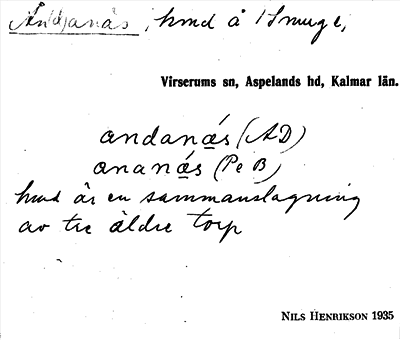 Åndanäs, hmd å Smuge,
Virserums sn, Aspelands hd, Kalmar län.
andanä́s (AD)
ananä́s (Pe B)
hmd är en sammanslagning
av tre äldre torp
NILS HENRIKSON 1935